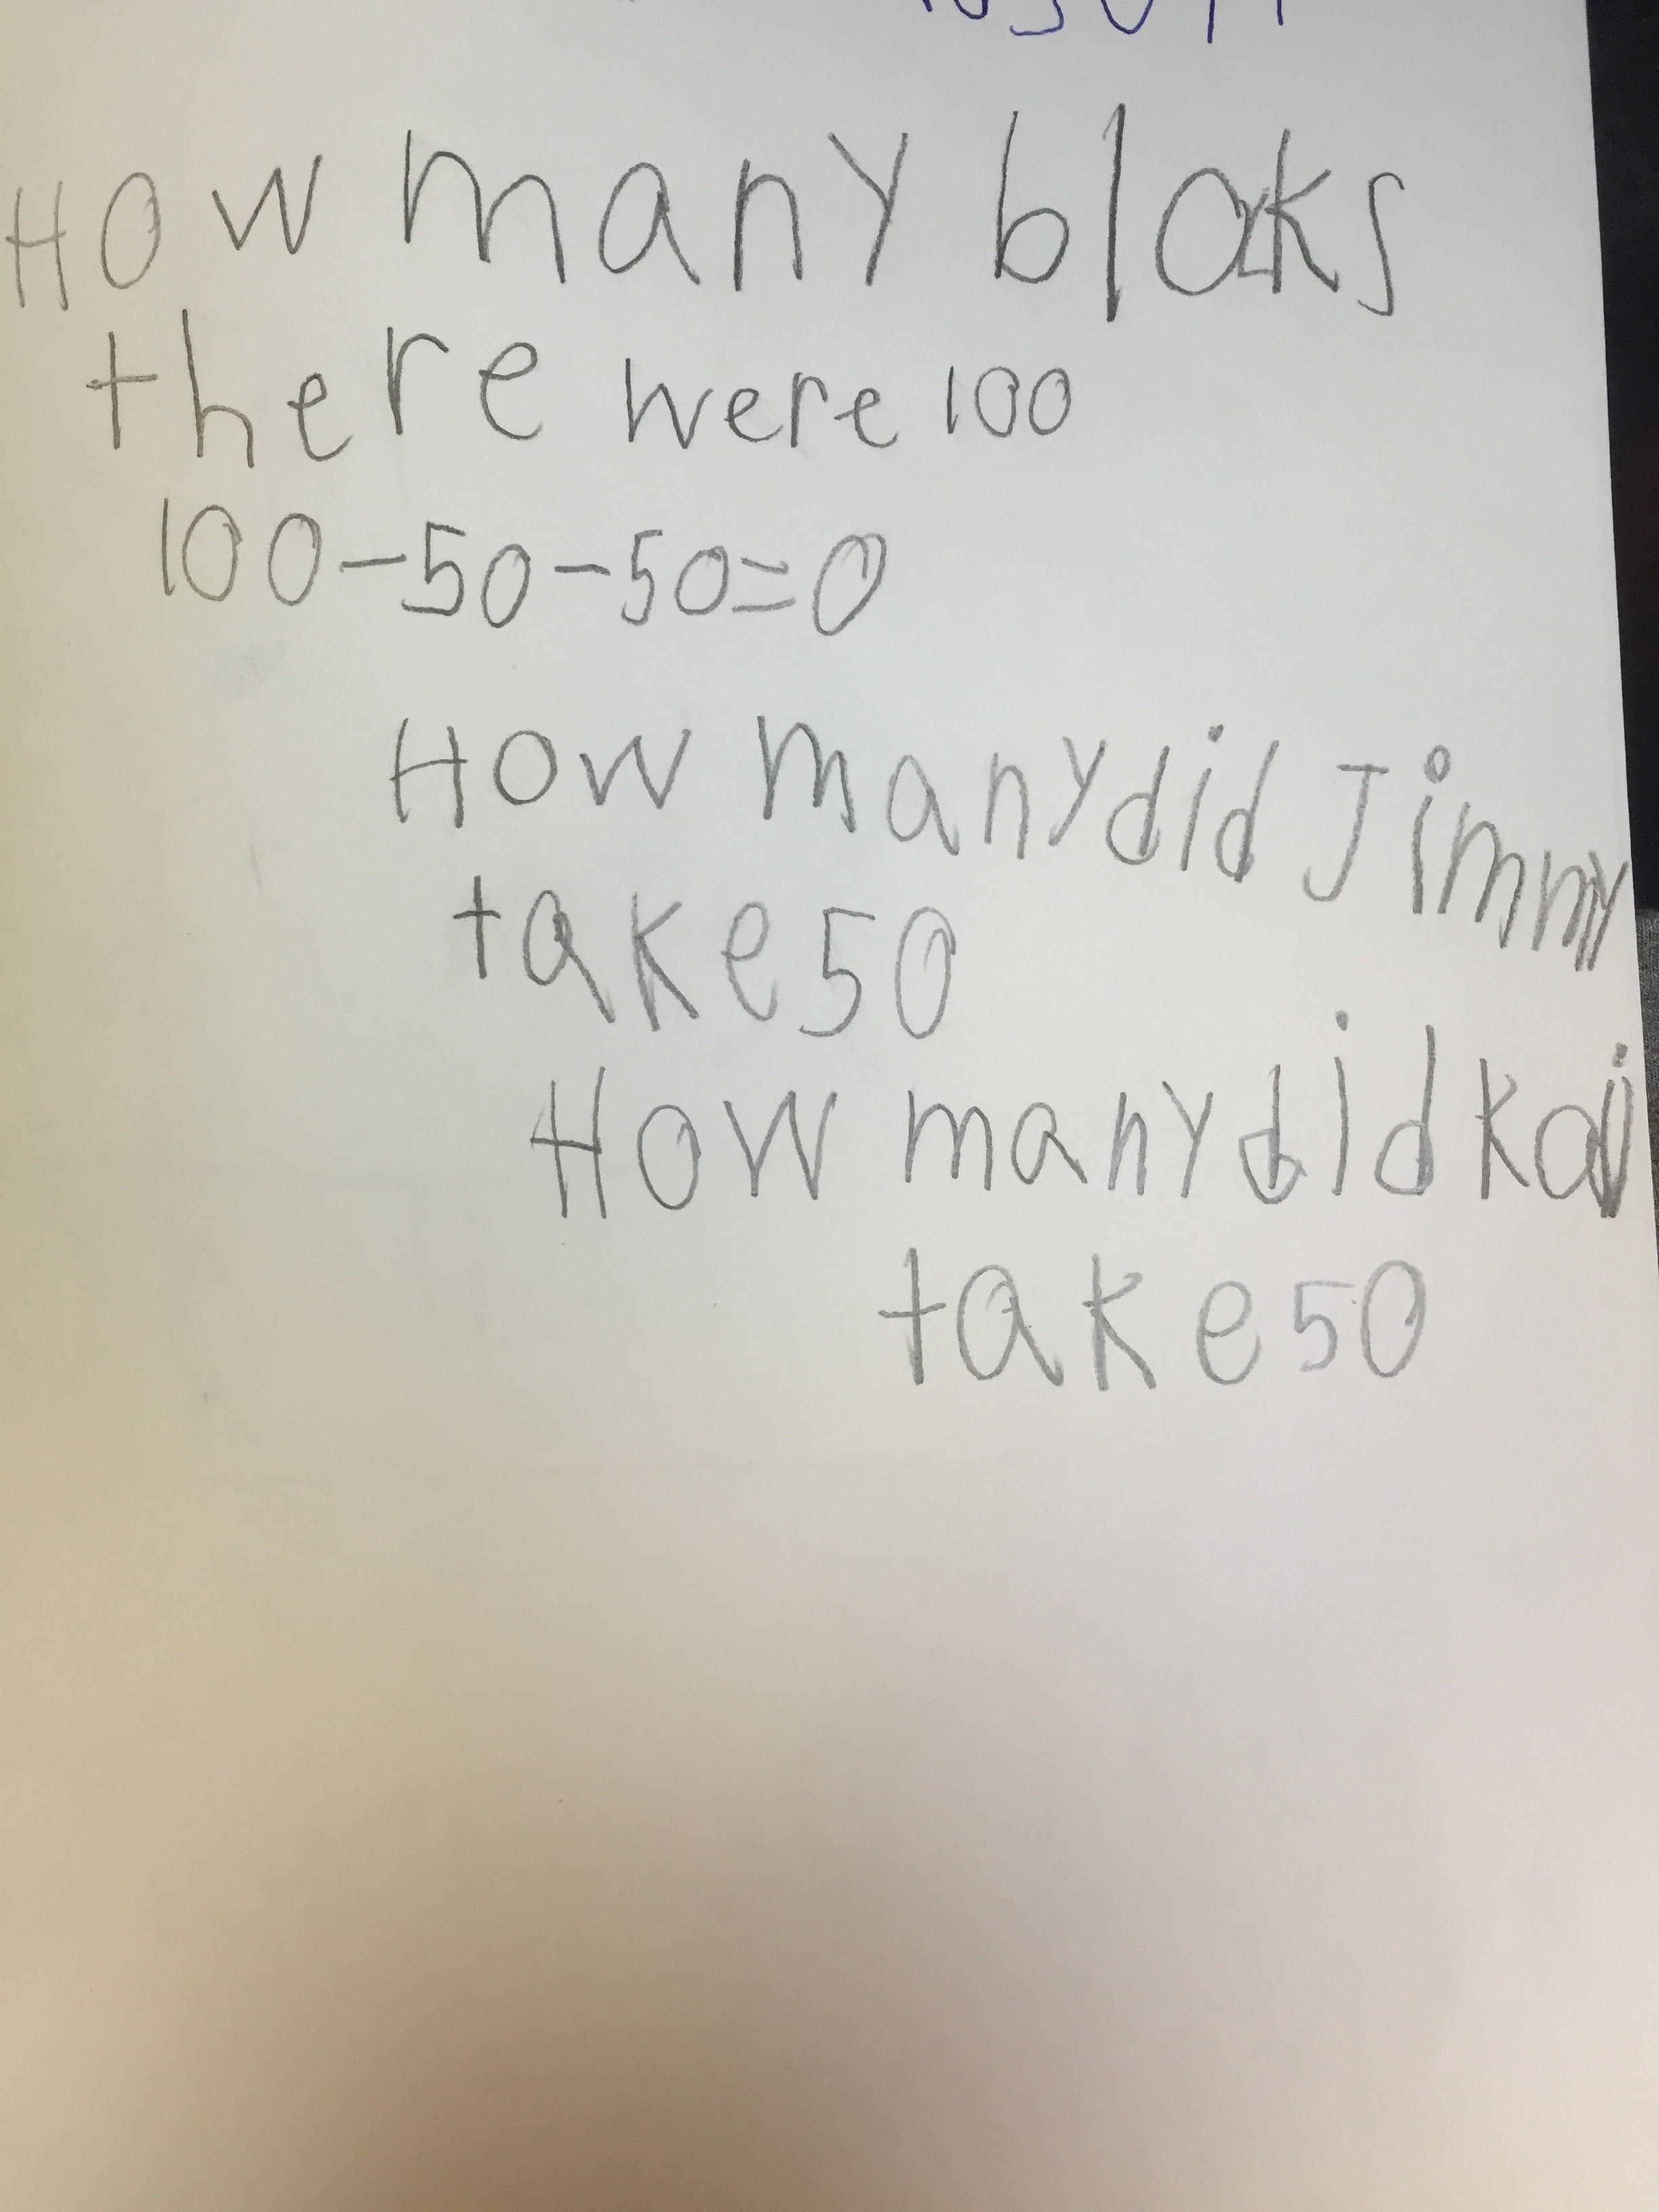 How many bloks
there were 100
100-50-50=0
How many did Jimmy
take 50
How many did kai
take 50